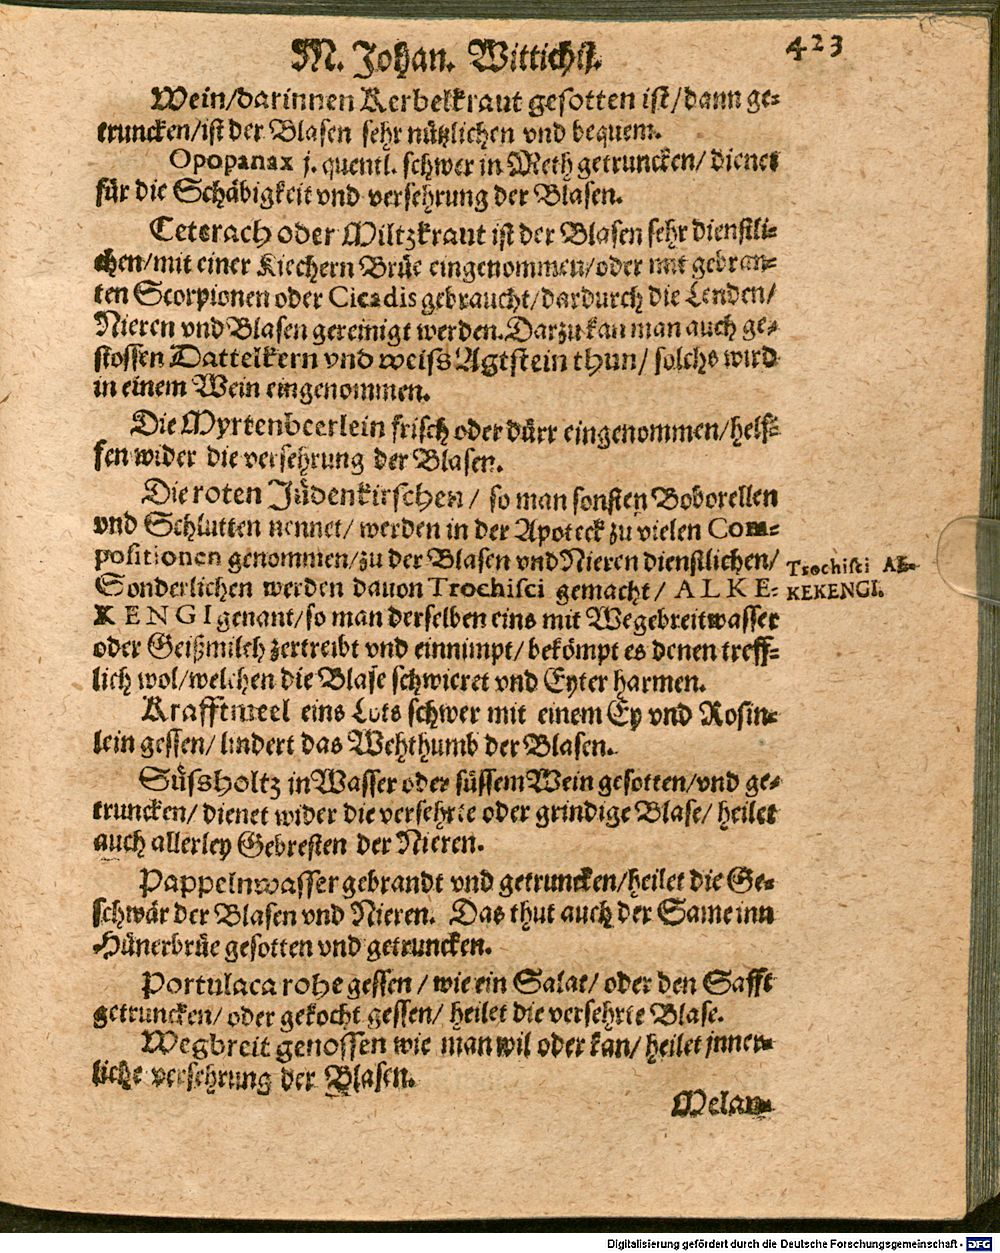 M. Johan. Wittichij.
423
Wein/darinnen Kerbelkraut gesotten ist/dann ge-
truncken/ist der Blasen sehr nützlichen vnd bequem.
Opopanax j. quentl. schwer in Meth getruncken/ dienet
für die Schäbigkeit vnd versehrung der Blasen.
Ceterach oder Miltzkraut ist der Blasen sehr dienstli-
chen/mit einer Kiechern Brüe eingenommen/oder mit gebran-
ten Scorpionen oder Cicadis gebraucht/dardurch die Lenden/
Nieren vnd Blasen gereinigt werden. Darzu kan man auch ge-
stossen Dattelkern vnd weiss Agtstein thun/ solchs wird
in einem Wein eingenommen.
Die Myrtenbeerlein frisch oder dürr eingenommen/helf-
fen wider die versehrung der Blasen.
Die roten Jüdenkirschen/ so man sonsten Boborellen
vnd Schlutten nennet/ werden in der Apoteck zu vielen Com-
positionen genommen/zu der Blasen vnd Nieren dienstlichen/
Sonderlichen werden dauon Trochisci gemacht/ ALKE-
KENGI genant/so man derselben eins mit Wegebreitwasser
oder Geißmilch zertreibt vnd einnimpt/ bekömpt es denen treff-
lich wol/welchen die Blase schwieret vnd Eyter harmen.
Trochisci AL-
KEKENGI.
Krafftmeel eins Lots schwer mit einem Ey vnd Rosin-
lein gessen/ lindert das Wehthumb der Blasen.
Süssholtz in Wasser oder süssem Wein gesotten/vnd ge-
truncken/ dienet wider die versehrte oder grindige Blase/ heilet
auch allerley Gebresten der Nieren.
Pappelnwasser gebrandt vnd getruncken/heilet die Ge-
schwär der Blasen vnd Nieren. Das thut auch der Same inn
Hünerbrüe gesotten vnd getruncken.
Portulaca rohe gessen/ wie ein Salat/ oder den Safft
getruncken/ oder gekocht gessen/ heilet die versehrte Blase.
Wegbreit genossen wie man wil oder kan/ heilet jnner-
liche versehrung der Blasen.
Melan-
Digitalisierung gefördert durch die Deutsche Forschungsgemeinschaft - DFG